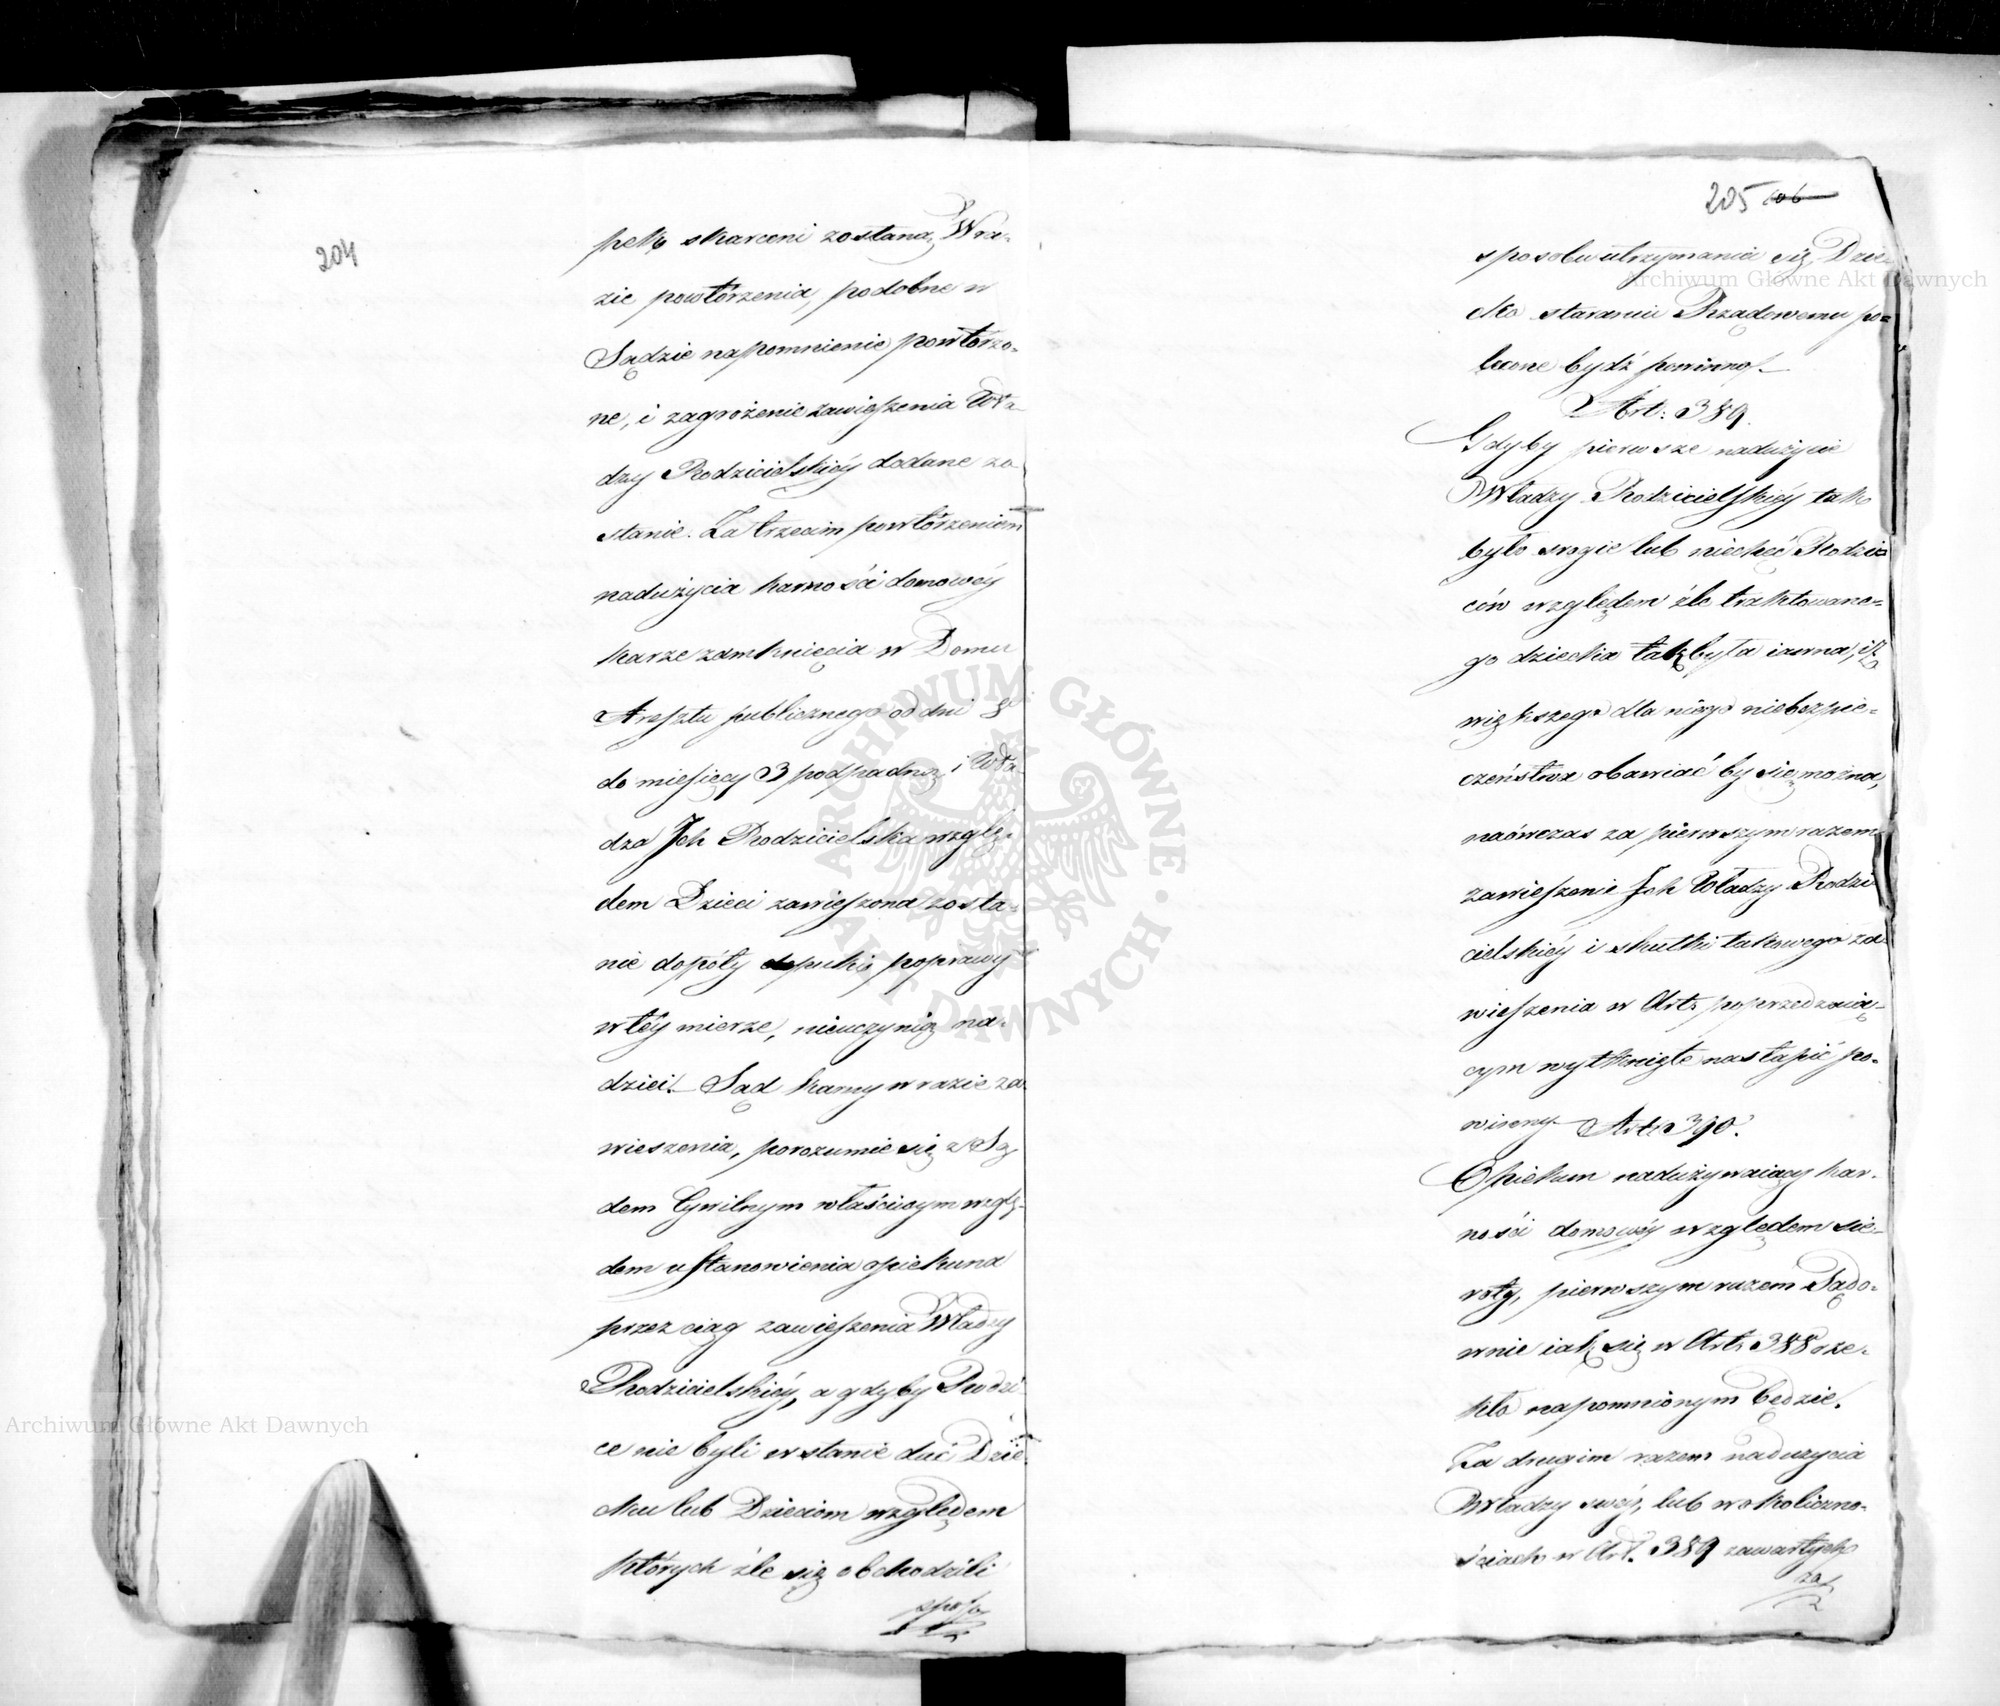 204
pekę skarceni zostaną, W ra-
zie powtórzenia, podobne w
Sądzie napomnienie powtórzo-
ne, i zagrożenie zawieszenia Wła-
dzy Rodzicielskiéy dodane zo
stanie. Za trzecim powtórzeniem
nadużycia karności domowéy
karze zamknięcia w Domu
Aresztu publicznego od dni 8
do miesięcy 3 podpadną, i Wła-
dza Jch Rodzicielska wzglę-
dem Dzieci zawieszona zosta-
nie dopóty dopuki poprawy
w téy mierze, nieuczynią na-
dziei. Sąd karny w razie za
wieszenia, porozumie się z Są
dem Cywilnym właściwym wzglę-
dem ustanowienia opiekuna
przez ciąg zawieszenia Władzy
Rodzicielskiéy, a gdyby Rodzi
ce nie byli w stanie dać Dzie
cku lub Dzieciom względem
których źle się obchodzili
sposo
205 106
sposobu utrzymania się, Dzie-
cko staraniu Rządowemu po=
lecone bydź powinno.
Art: 389.
Gdyby pierwsze nadużycie
Władzy Rodzicielskiéy tak
było srogie lub niechęć Rodzi
ców względem źle traktowane-
go dziecka tak była iawna, iż
większego dla niego niebezpie-
czeństwa obawiać by się można,
naówczas za pierwszym razem
zawieszenie Jch Władzy Rodzi
cielskiéy i skutki takowego za
wieszenia w Art: poprzedzaią-
cym wytknięte nastąpić po-
winny Art: 390.
Opiekun nadużywaiący kar-
ności domowéy względem sie-
roty, pierwszym razem Sądo-
wnie iak się w Art: 388 rze-
kło napomnionym będzie.
Za drugim razem nadużycia
Władzy swéj, lub w okoliczno-
ściach w Art. 389 zawartych
za
Archiwum Główne Akt Dawnych
Archiwum Główne Akt Dawnych
ARCHIWUM GŁÓWNE AKT DAWNYCH